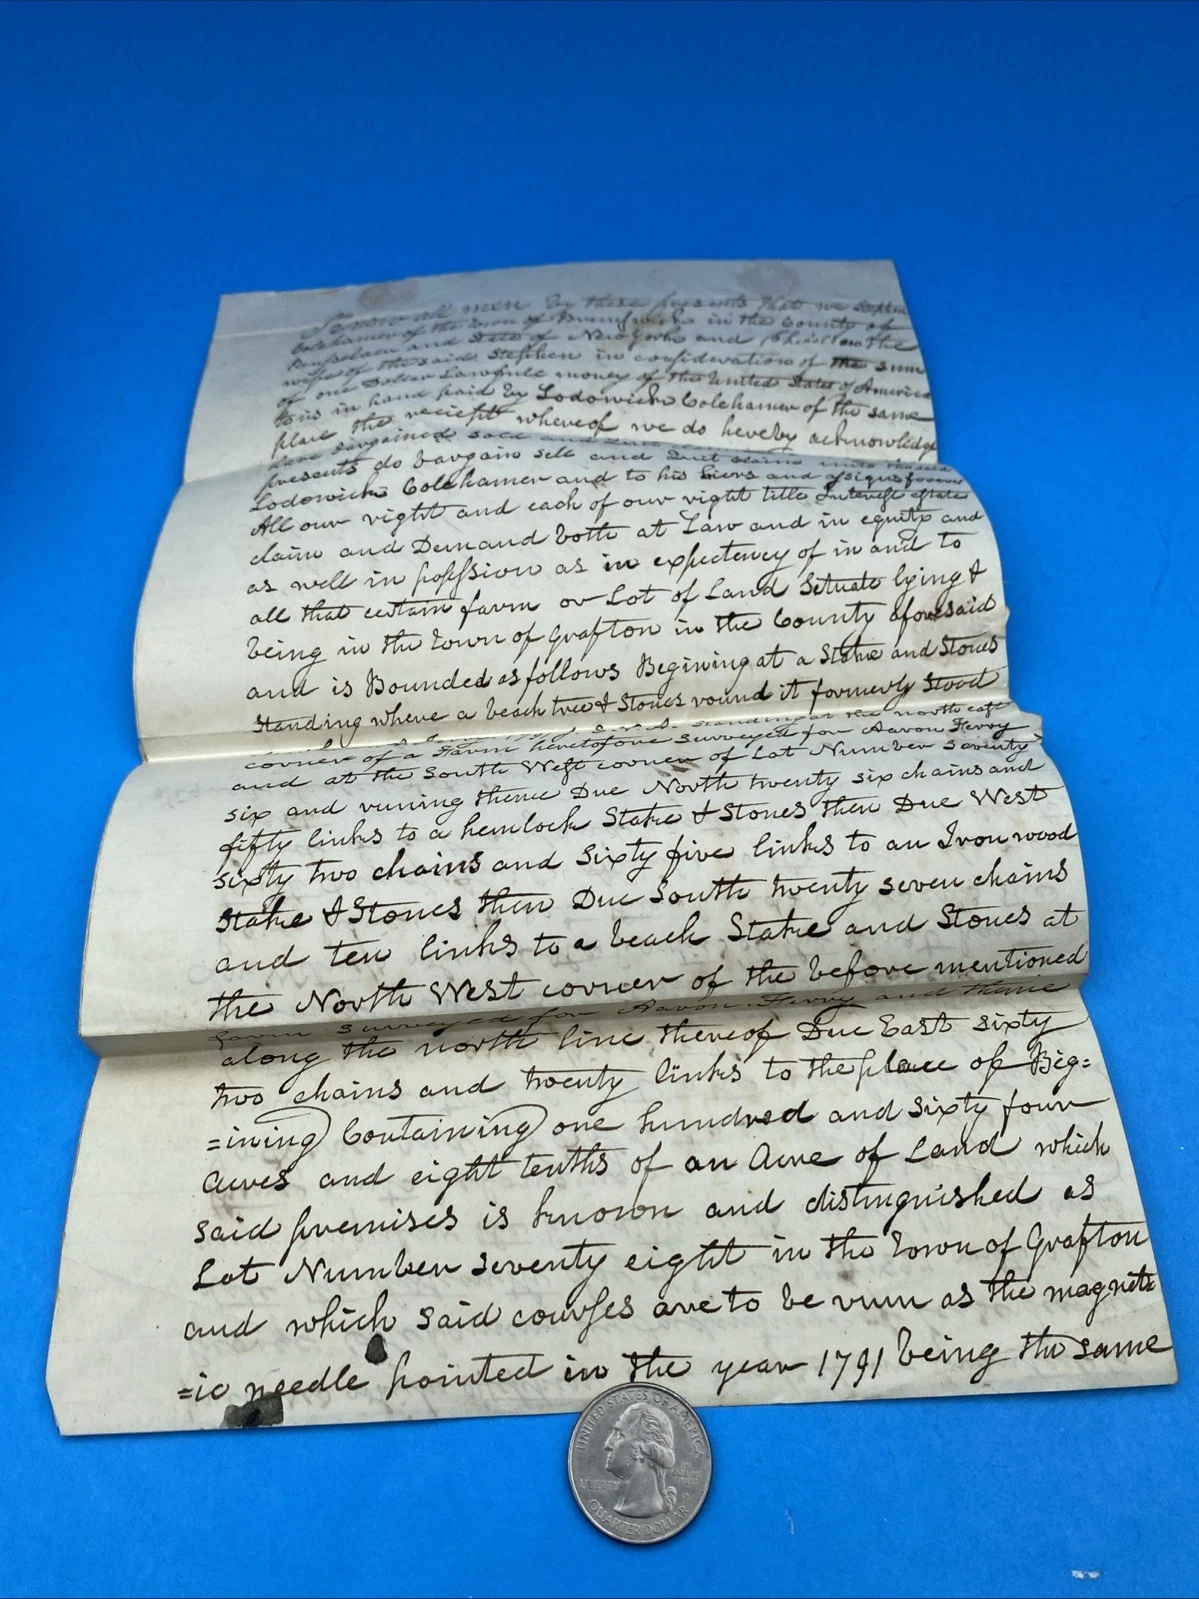 Know all men by these presents that we Stephen
Colehamer of the Town of Brunswick in the County of
Rensselaer and State of New York and the
wife of the said Stephen in consideration of the sum
of one Dollar Lawfull money of the United States of America
to us in hand paid by Lodowick Colehamer of the same
place the reciept whereof we do hereby acknowledge
have bargained sold and Quit
presents do bargain sell and Quit claim unto the said
Lodowick Colehamer and to his hiers and assigns forever
All our right and each of our right title Interest estate
claim and Demand both at Law and in equity and
as well in possession as in expectency of in and to
all that certain farm or Lot of Land Situate lying &
being in the Town of Grafton in the County aforesaid
and is Bounded as follows Begining at a Stake and Stones
standing where a beach tree & Stones round it formerly Stood
standing at the north east
corner of a Farm heretofore surveyed for Aaron Ferry
and at the South West corner of Lot Number Seventy
six and runing thence Due North twenty six chains and
fifty links to a hemlock Stake & Stones then Due West
sixty two chains and Sixty five links to an Iron wood
Stake & Stones then Due South twenty seven chains
and ten links to a beach Stake and Stones at
the North West corner of the before mentioned
farm surveyed for Aaron Ferry and thence
along the north line thereof Due East sixty
two chains and twenty links to the place of Beg=
=ining) Containing) one hundred and sixty four
acres and eight tenths of an acre of Land which
said premises is known and distinguished as
Lot Number seventy eight in the Town of Grafton
and which said courses are to be run as the magnet
=ic needle pointed in the year 1791 being the same
UNITED STATES OF AMERICA
LIBERTY
QUARTER DOLLAR